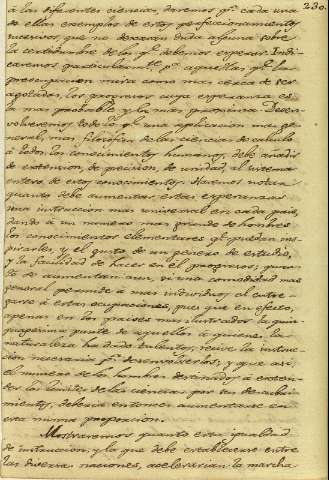 230.
á las diferentes ciencias, daremos pª cada una
de ellas exemplos de estos perfeccionamientos
sucesivos, que no dexarán duda alguna sobre
la certidumbre de los qº debemos esperar. Indi-
caremos particularmente pª aquellas qº la
preocupacion mira como mas cerca de ser
agotadas, los progresos cuya esperanza es
la mas probable y la mas proxima. Desen-
volveremos todo lo qº una aplicacion mas ge-
neral, mas filosofica de las ciencias de calculo
á todos los conocimientos humanos, debe añadir
de extension, de precision, de unidad, al sistema
entero de estos conocimientos. Haremos notar
quanto debe aumentar estas esperanzas
una instruccion mas universal en cada pais,
dando á un numero mas grande de hombres
los conocimientos elementares qº puedan ins-
pirarles, y el gusto de un genero de estudio,
y la facilidad de hacer en él progresos; quan-
to se aumentan aun, si una comodidad mas
general permite á mas individuos el entre-
garse á estas ocupaciones, pues que en efecto,
apenas en los paises mas ilustrados la quin-
quagesima parte de aquellos á quienes la
naturaleza ha dado talentos, recibe la instruc-
cion necesaria pª desenvolverlos; y que asi,
el numero de los hombres destinados á exten-
der los limites de las ciencias por sus descubri-
mientos, deberia entonces aumentarse en
esta misma proporcion.
Mostraremos quanto esta igualdad
de instruccion, y la que debe establecerse entre
las diversas naciones, acelerarian la marcha